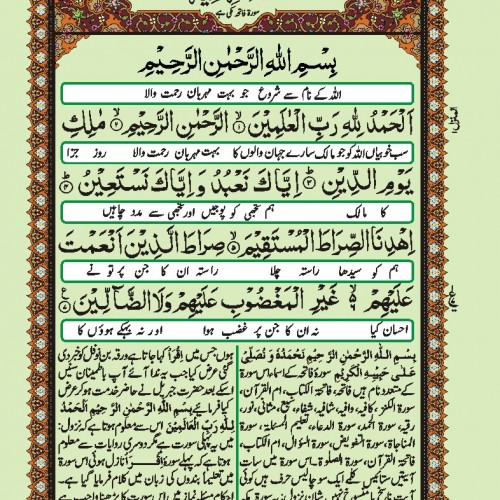 سورۃ فاتحہ مکی ہے
بِسْمِ اللّٰهِ الرَّحْمٰنِ الرَّحِیْمِ
اللہ کے نام سے شروع جو بہت مہربان رحمت والا
اَلْحَمْدُ لِلّٰهِ رَبِّ الْعٰلَمِیْنَ ۙ﴿۱﴾ الرَّحْمٰنِ الرَّحِیْمِ ۙ﴿۲﴾ مٰلِكِ
سب خوبیاں اللہ کو جو مالک سارے جہان والوں کا بہت مہربان رحمت والا روز جزا
یَوْمِ الدِّیْنِ ؕ﴿۳﴾ اِیَّاكَ نَعْبُدُ وَ اِیَّاكَ نَسْتَعِیْنُ ؕ﴿۴﴾
کا مالک ہم تجھی کو پوجیں اور تجھی سے مدد چاہیں
اِهْدِنَا الصِّرَاطَ الْمُسْتَقِیْمَ ۙ﴿۵﴾ صِرَاطَ الَّذِیْنَ اَنْعَمْتَ
ہم کو سیدھا راستہ چلا راستہ ان کا جن پر تو نے
عَلَیْهِمْ ۙ۬﴿۶﴾ غَیْرِ الْمَغْضُوْبِ عَلَیْهِمْ وَلَا الضَّآلِّیْنَ ﴿۷﴾
احسان کیا نہ ان کا جن پر غضب ہوا اور نہ بہکے ہوؤں کا
بِسْمِ اللّٰهِ الرَّحْمٰنِ الرَّحِیْمِ نَحْمَدُهٗ وَ نُصَلِّیْ
عَلٰی حَبِیْبِهِ الْكَرِیْمِ سورۂ فاتحہ کے اسماء اس سورۃ
کے متعدد نام ہیں فاتحہ، فاتحۃ الکتاب، ام القرآن،
سورۃ الکنز، کافیہ، وافیہ، شافیہ، شفاء، سبع مثانی، نور،
رقیہ، سورۃ الحمد، سورۃ الدعاء، تعلیم المسئلہ، سورۃ
المناجاۃ، سورۃ التفویض، سورۃ السؤال، ام الکتاب،
فاتحۃ القرآن، سورۃ الصلوۃ۔ اس سورۃ میں سات
آیتیں ستائیس کلمے ایک سو چالیس حرف ہیں کوئی
ہوں جس میں اِقْرَاْ کہا جاتا ہے ورقہ بن نوفل کو خبر دی
گئی عرض کیا جب یہ ندا آئے آپ باطمینان سنیں
اسکے بعد حضرت جبریل نے حاضر خدمت ہو کر عرض
کیا فرمایئے بِسْمِ اللّٰهِ الرَّحْمٰنِ الرَّحِیْمِ اَلْحَمْدُ
لِلّٰهِ رَبِّ الْعٰلَمِیْنَ اس سے معلوم ہوتا ہے کہ نزول
میں یہ پہلی سورت ہے مگر دوسری روایات سے معلوم
ہوتا ہے کہ پہلے سورۂ اِقْرَاْ نازل ہوئی اس سورۃ
میں تعلیماً بندوں کی زبان میں کلام فرمایا گیا ہے۔